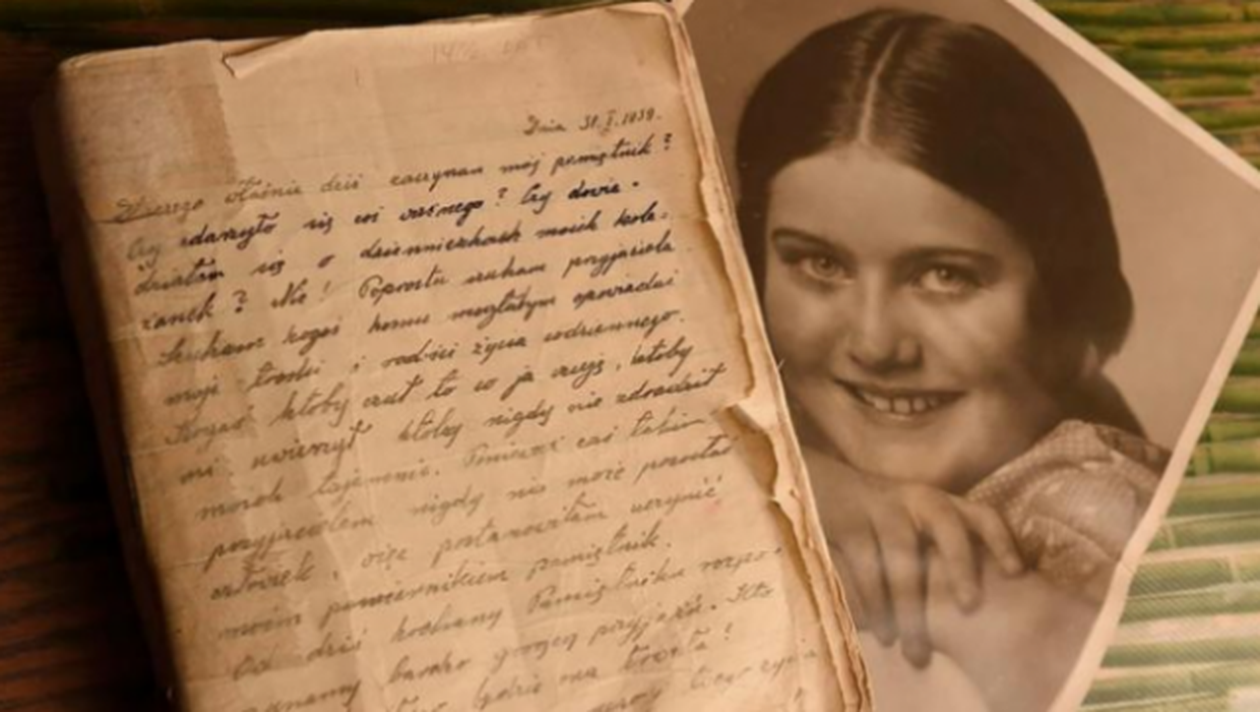 Dnia 31.I.1939.
właśnie dziś zaczynam mój pamiętnik?
Czy zdarzyło się coś ważnego? Czy dowie-
działam się o dzienniczkach moich kole-
żanek? Nie! Poprostu szukam przyjaciela.
Szukam kogoś komu mogłabym opowiadać
moje troski i radości życia codziennego.
Kogoś ktoby czuł to co ja czuję, ktoby
mi uwierzył ktoby nigdy nie zdradził
moich tajemnic. takim
przyjacielem nigdy nie może pozostać
człowiek, więc postanowiłam uczynić
moim powiernikiem pamiętnik.
Od dziś kochany Pamiętniku rozpo-
bardzo gorącą przyjaźń. Kto
będzie ona trwała?